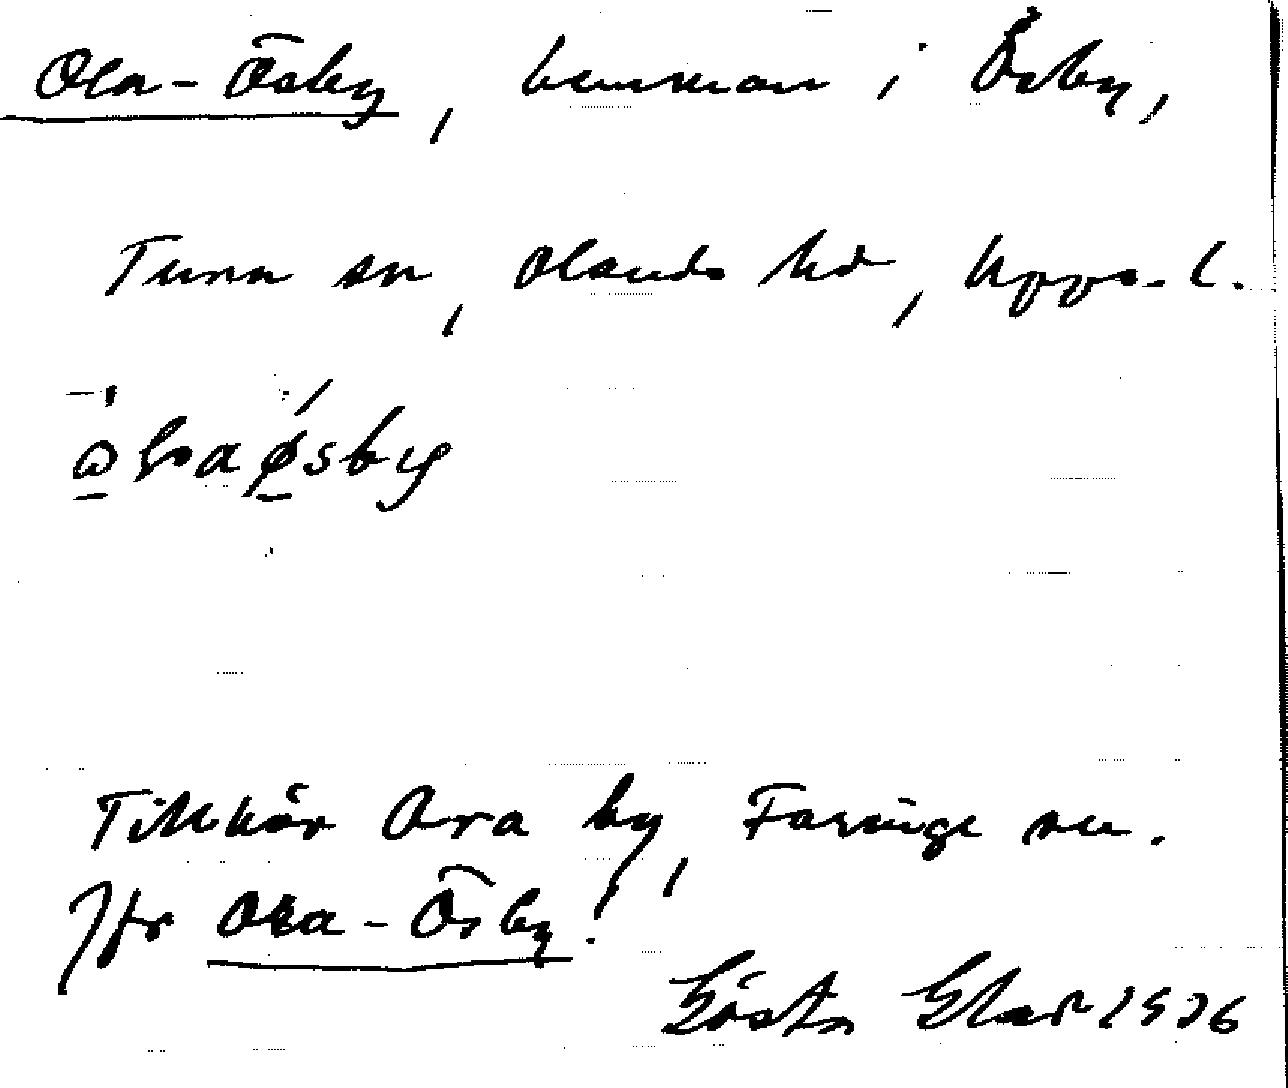 Ola-Ösby, hemman i Ösby,
Tuna sn, Olands hd, Upps. l.
Tillhör Ora by, Faringe sn.
Jfr Ora-Ösby!
Gösta 1936